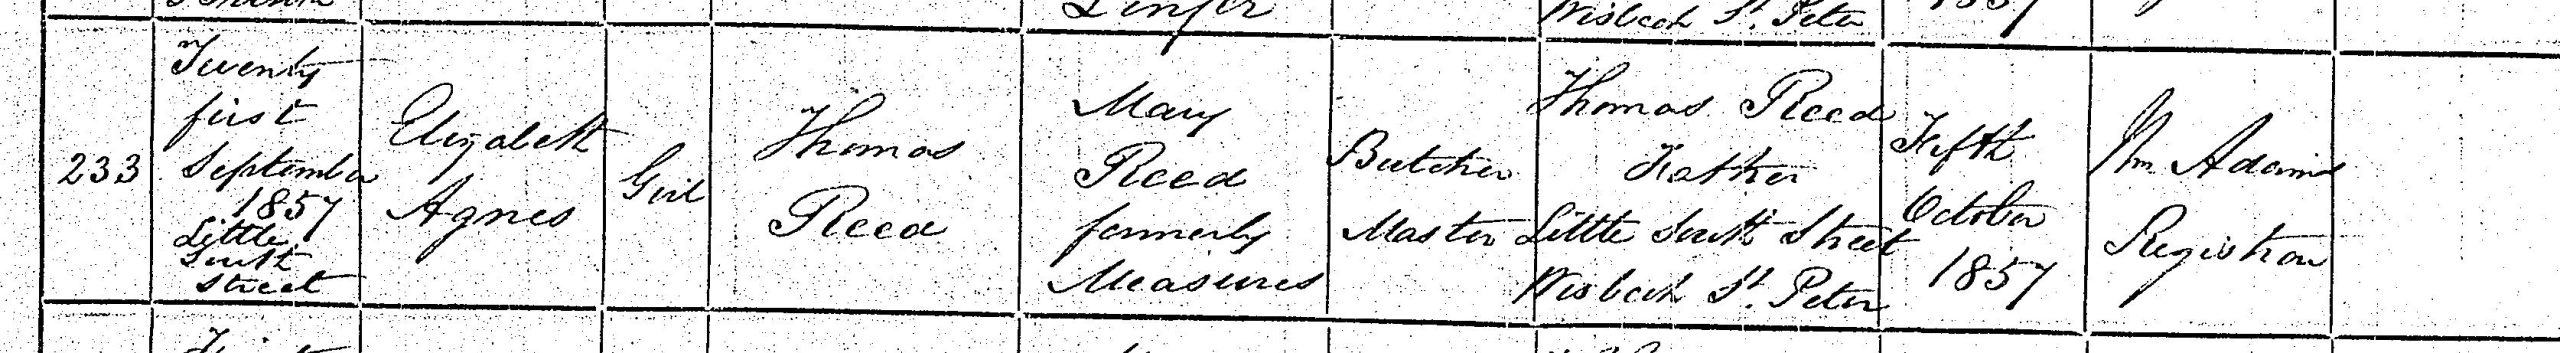 Linfor
Wisbech St. Peter
1857
233
Twenty
first
September
1857
Little
South
Street
Elizabeth
Agnes
Girl
Thomas
Reed
Mary
Reed
formerly
Measures
Butcher
Master
Thomas Reed
Father
Little South Street
Wisbech St. Peter
Fifth
October
1857
Wm Adams
Registrar